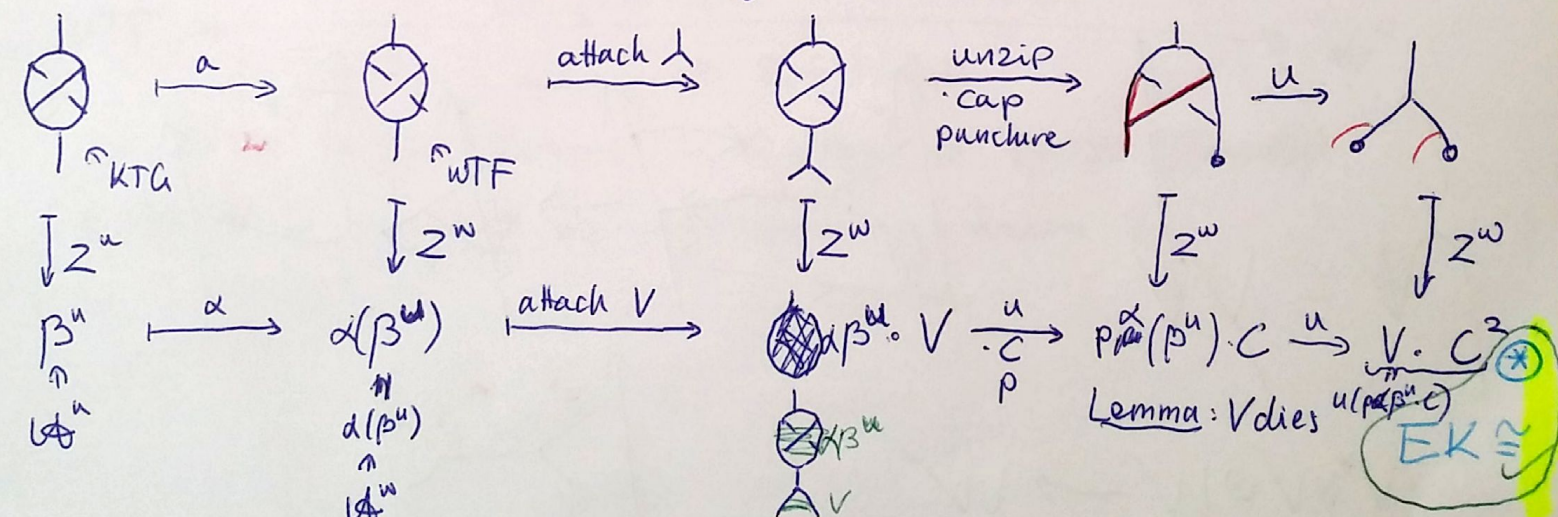 a
attach ⅄
unzip
·cap
puncture
u
KTG
wTF
Z^u
Z^w
Z^w
Z^w
Z^w
β^u
α
α(β^u)
attach V
αβ^u · V
u
·C
p
pα(β^u)·C
u
V · C²
*
=
α(β^u)
A^u
A^w
αβ^u
V
Lemma: V dies
u(pαβ^u·C)
EK ≅